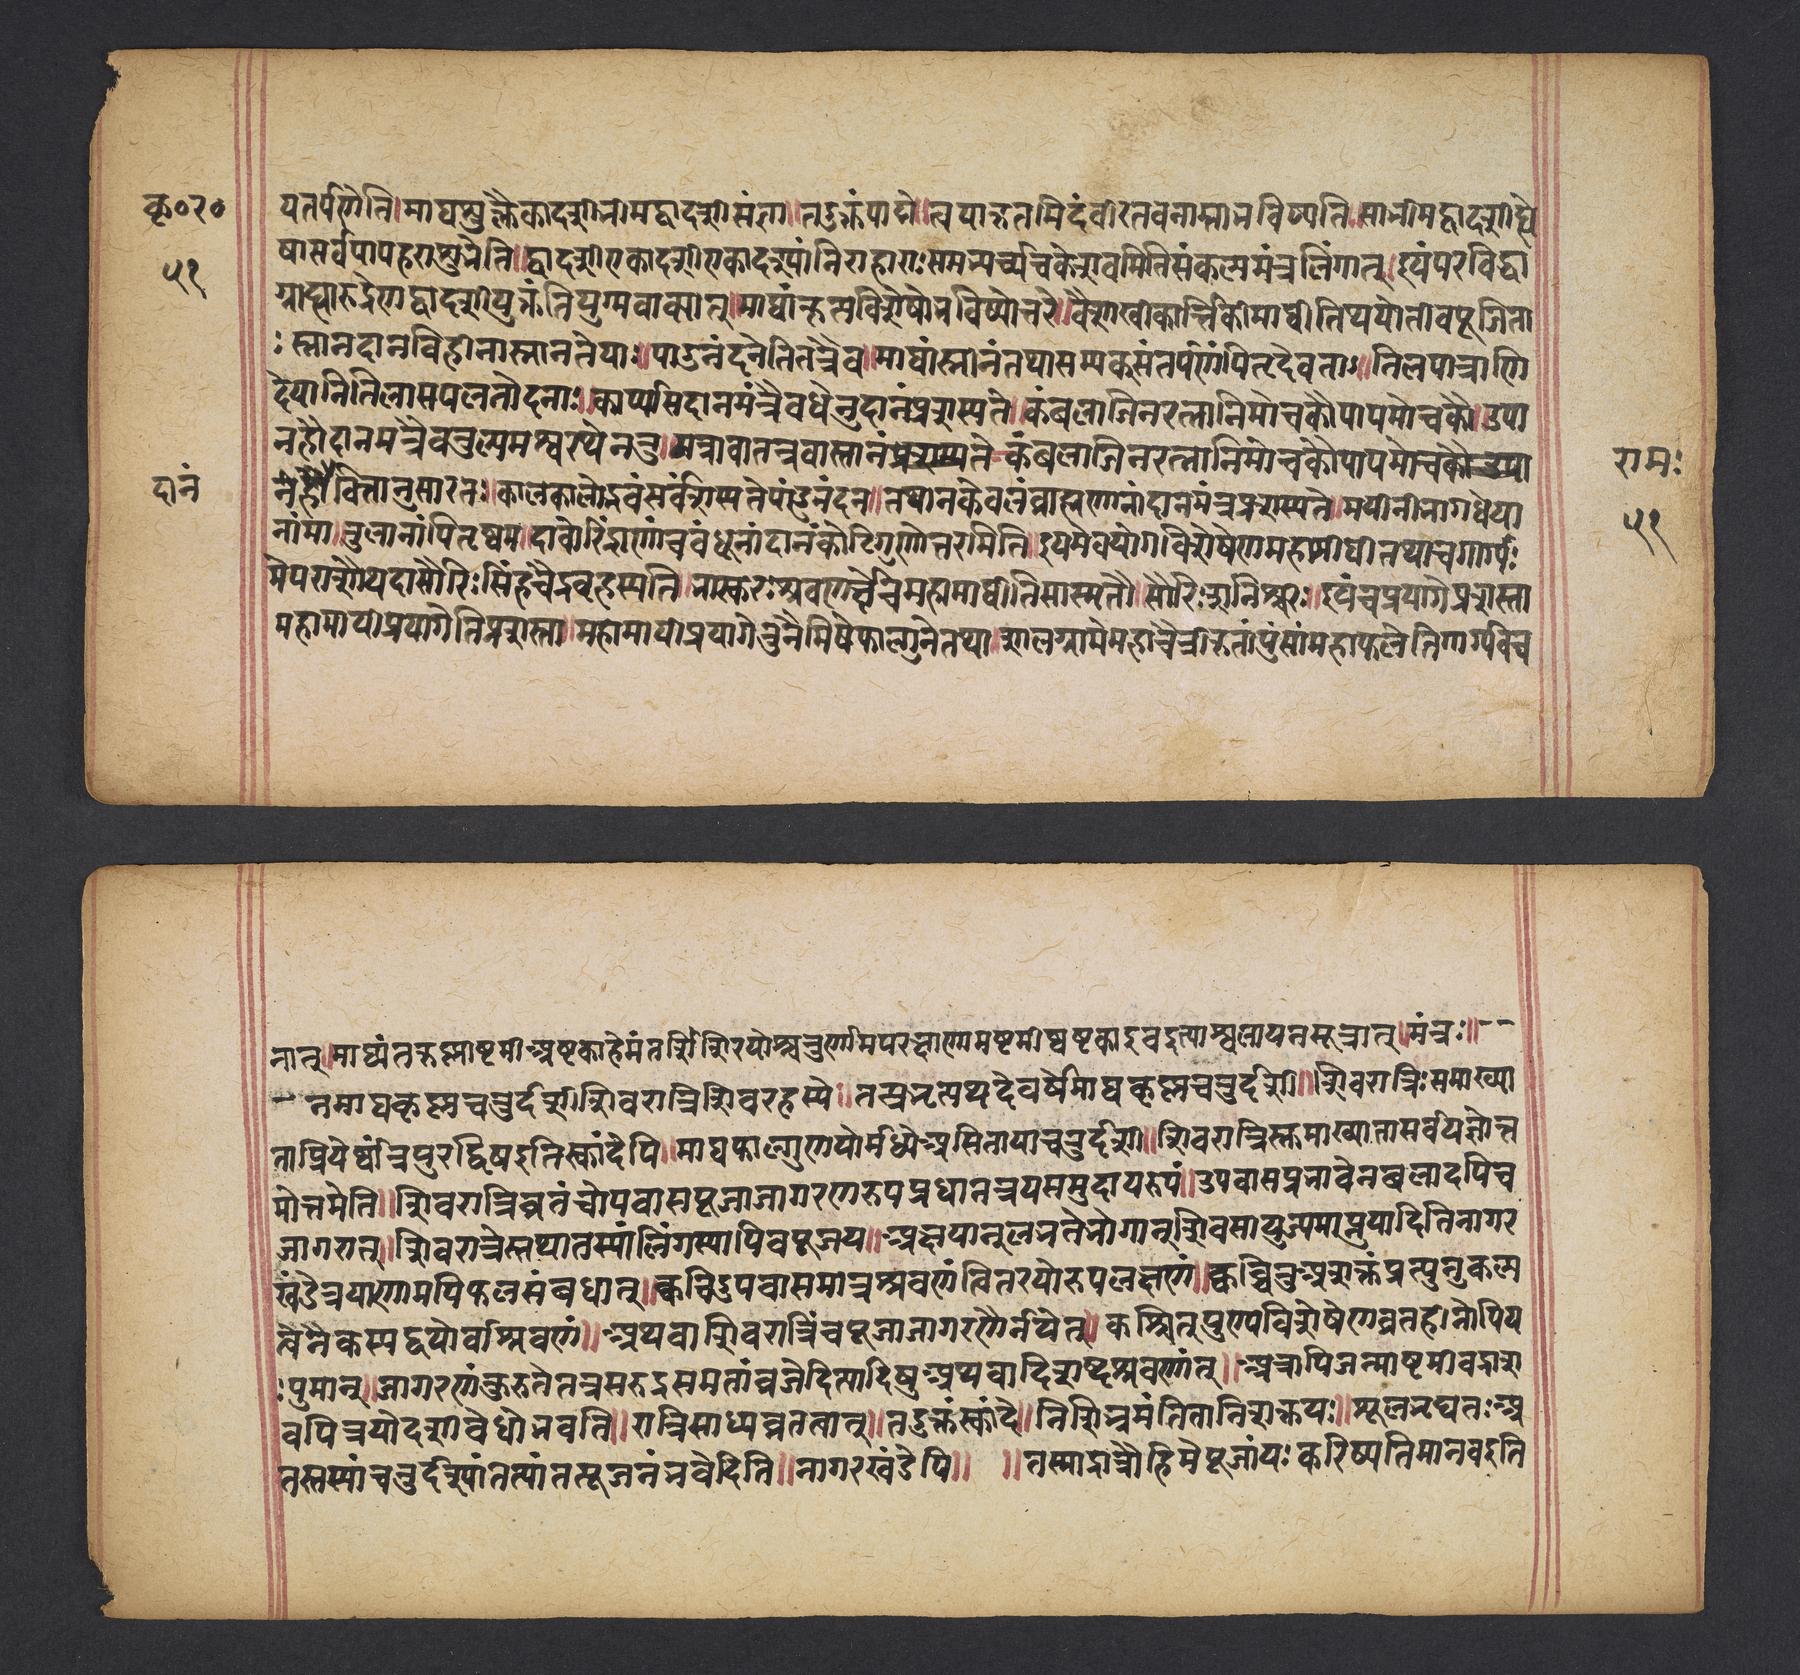 कृ०र०
५१
यतर्पणेति।माघशुक्लैकादशीभीमद्वादशीसंज्ञा।तदुक्तंपाद्मे।त्वयाकृतमिदंवीरतवनाम्नाभविष्यति।साभीमद्वादशीह्ये
षासर्वपापहराशुभेति।द्वादशीएकादशीएकादश्यांनिराहारःसमभ्यर्च्यचकेशवमितिसंकल्पमंत्रलिंगात्।इयंपरविद्धा
ग्राह्यारुद्रेणद्वादशीयुक्तेतियुग्मवाक्यात्।माघ्यांकृत्यविशेषोभविष्योत्तरे।वैशाखीकार्त्तिकीमाघीतिथयोतीवपूजिता
ःस्नानदानविहीनास्नाननेयाःपांडुनंदनेतितत्रैव।माघ्यांस्नानंतथासम्यक्संतर्पणंपितृदेवताः।तिलपात्राणि
देयानितिलासपललौदनाः।कार्पासदानमत्रैवधेनुदानंप्रशस्यते।कंबलाजिनरत्नानिमोचकौपापमोचकौ।उपा
नहोदानमत्रैवतुल्यमश्वरथेनतु।यत्रवातत्रवास्नानंप्रशस्यते कंबलाजिनरत्नानिमोचकौपापमोचकौउपा
दानं नेहौवित्तानुसारतः।कालेकालोद्भवंसर्वंशस्यतेपांडुनंदन।नचात्रकेवलंब्राह्मणानांदानमंत्रप्रशस्यते।मघीनीनागधेया रामः
नांमातुलानांपितृष्वस।दावीरिद्राणांचबंधूनांदानंकोटिगुणोत्तरमिति।इयमेवयोगविशेषेणमहामाघीतथाचगार्ग्यः ५१
मेषराशौयदासौरिःसिंहेचैद्रबृहस्पति।भास्करःश्रवणर्क्षेचमहामाघीतिसास्मृतौ।सौरिःशनिश्चरः।इयंचप्रयागेप्रशस्ता
महामाघीप्रयागेतिप्रशस्ता।महामाघीप्रयागेतुनैमिषेफाल्गुनेतथा।शालग्रामेमहाचैत्रीकृतांपुंसांमहाफलेतिगार्ग्यवच
नात्।माघ्यंतकृष्णाष्टमीअष्टकाहेमंतशिशिरयोश्चतुर्णामपरपक्षाणामष्टमीष्वष्टकाइवइत्याश्वलायनसूत्रात्।मंत्रः॥--
-- नमाघकृष्णचतुर्दशीशिवरात्रिशिवरहस्ये।तत्प्रभृत्यथदेवर्षेमाघकृष्णचतुर्दशी।शिवरात्रिःसमाख्या
ताप्रियेयंत्रिपुरद्विषइतिस्कांदेपि।माघफाल्गुणयोर्मध्येअसितायाचतुर्दशी॥शिवरात्रिस्तुमाख्यातासर्वयज्ञोत्त
मोत्तमेति।शिवरात्रिव्रतंचोपवासपूजाजागरणरूपप्रधानत्रयसमुदायरूपं।उपवासप्रभावेनबलादपिच
जागरात्।शिवरात्रेस्तथातस्यांलिंगस्यापिवपूजय।अक्षयान्लभतेभोगान्शिवसायुज्यमाप्नुयादितिनागर
खंडेत्रयाणामपिफलसंबधात्।क्वचिदुपवासमात्रश्रवणंत्वितरयोरुपलक्षणं।क्वचित्तुअशक्तंप्रत्यनुकल्प
त्वेनैकस्यद्वयोर्वाश्रवणं।अथवाशिवरात्रिंचपूजाजागरणैर्नयेत्।कश्चित्पुण्यविशेषेणव्रतहीनोपिय
ःपुमान्।जागरणंकुरुतेतत्रसरुद्रसमतांव्रजेदित्यादिषुअथवादिशब्दश्रवणंतु।अत्रापिजन्माष्टमीवद्राशा
वपित्रयोदशीवेधोभवति।रात्रिसाध्यव्रतत्वात्।तदुक्तंस्कांदे।निशिभ्रमंतिभूतानिशक्तयः।शूलभृद्यतःअ
तस्तस्यांचतुर्दश्यांतत्यांतत्पूजनंभवेदिति।नागरखंडेपि॥ ॥तस्माद्रात्रौहिमेपूजांयःकरिष्यतिमानवइति